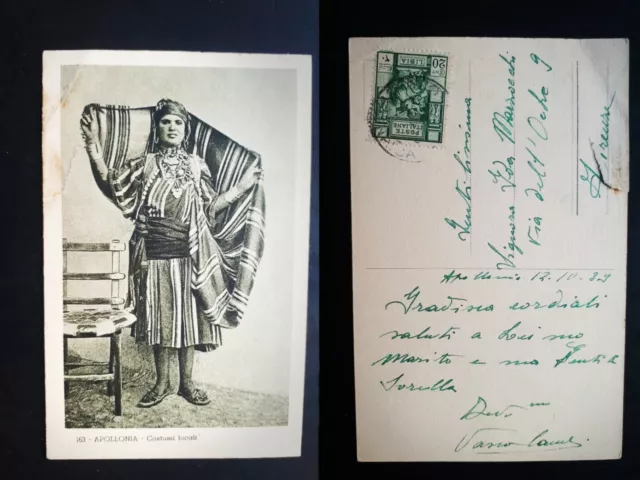 163 - APOLLONIA - Costumi locali
20
LIBIA
POSTE
ITALIANE
Gentilissima
Signora Ida
Via dell'Oche 9
Firenze
Apollonia 12-10-39
Gradisca cordiali
saluti a Lei suo
Marito e sua Gentile
Sorella
Dev mo